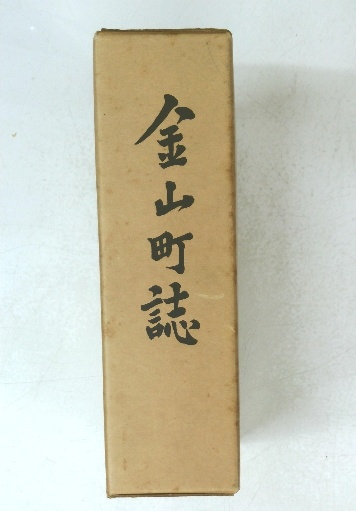 金山町誌